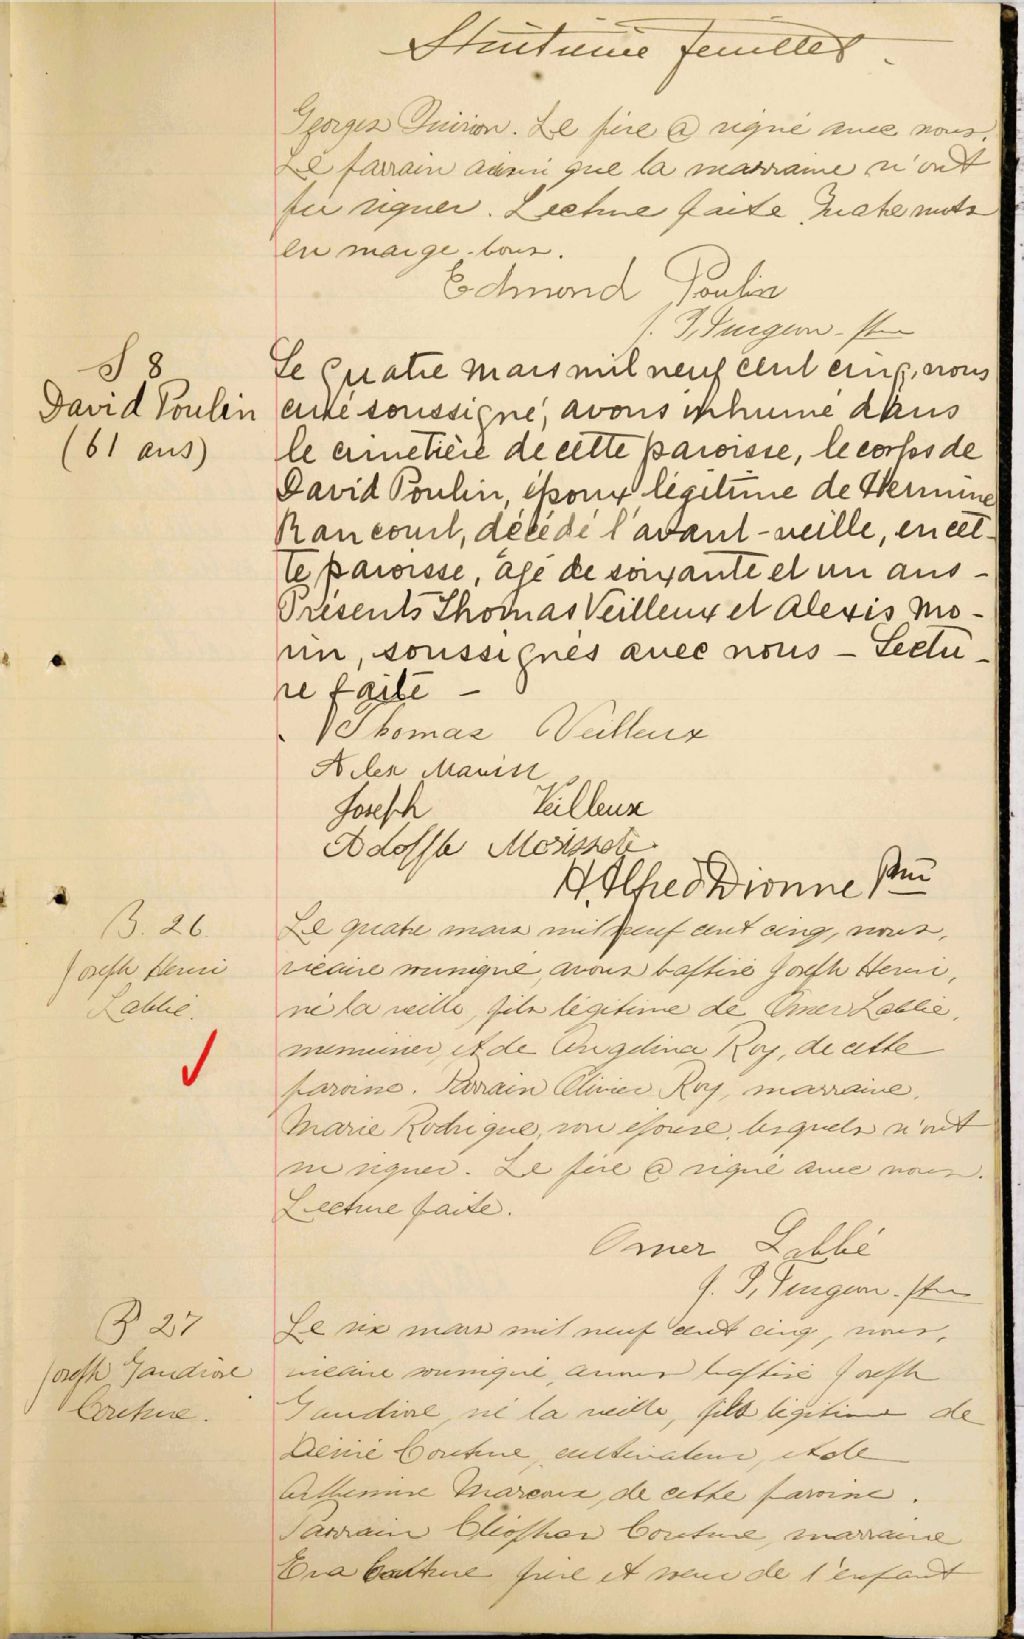 Huitième feuillet.
Georges Quirion. Le père a signé avec nous.
Le parrain ainsi que la marraine n'ont
pu signer. Lecture faite. Quatre mots
en marge bons.
Edmond Poulin
J. P. Turgeon, ptre
S 8
David Poulin
(61 ans)
Le quatre mars mil neuf cent cinq, nous
curé soussigné, avons inhumé dans
le cimetière de cette paroisse, le corps de
David Poulin, époux légitime de Hermine
Rancourt, décédé l'avant-veille, en cet-
te paroisse, âgé de soixante et un ans -
Présents Thomas Veilleux et Alexis Mo-
rin, soussignés avec nous - Lectu-
re faite -
Thomas Veilleux
Alex Morin
Joseph Veilleux
Adolph Morissete
H. Alfred Dionne Ptre
B. 26.
Joseph Henri
Labbé.
Le quatre mars mil neuf cent cinq, nous,
vicaire soussigné, avons baptisé Joseph Henri,
né la veille, fils légitime de Omer Labbé,
menuisier, et de Angelina Roy, de cette
paroisse. Parrain Olivier Roy, marraine,
Marie Rodrigue, son épouse, lesquels n'ont
su signer. Le père a signé avec nous.
Lecture faite.
Omer Labbé
J. P. Turgeon, ptre
B 27
Joseph Gaudiose
Couture.
Le six mars mil neuf cent cinq, nous,
vicaire soussigné, avons baptisé Joseph
Gaudiose, né la veille, fils légitime de
Couture, cultivateur, et de
Marcoux, de cette paroisse.
Parrain Cléophas Couture, marraine
Eva Couture frère et soeur de l'enfant